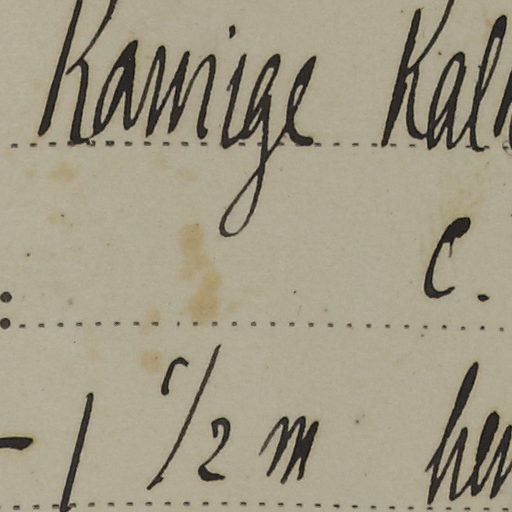 Kamige Kal
c.
- 1 1/2 m her